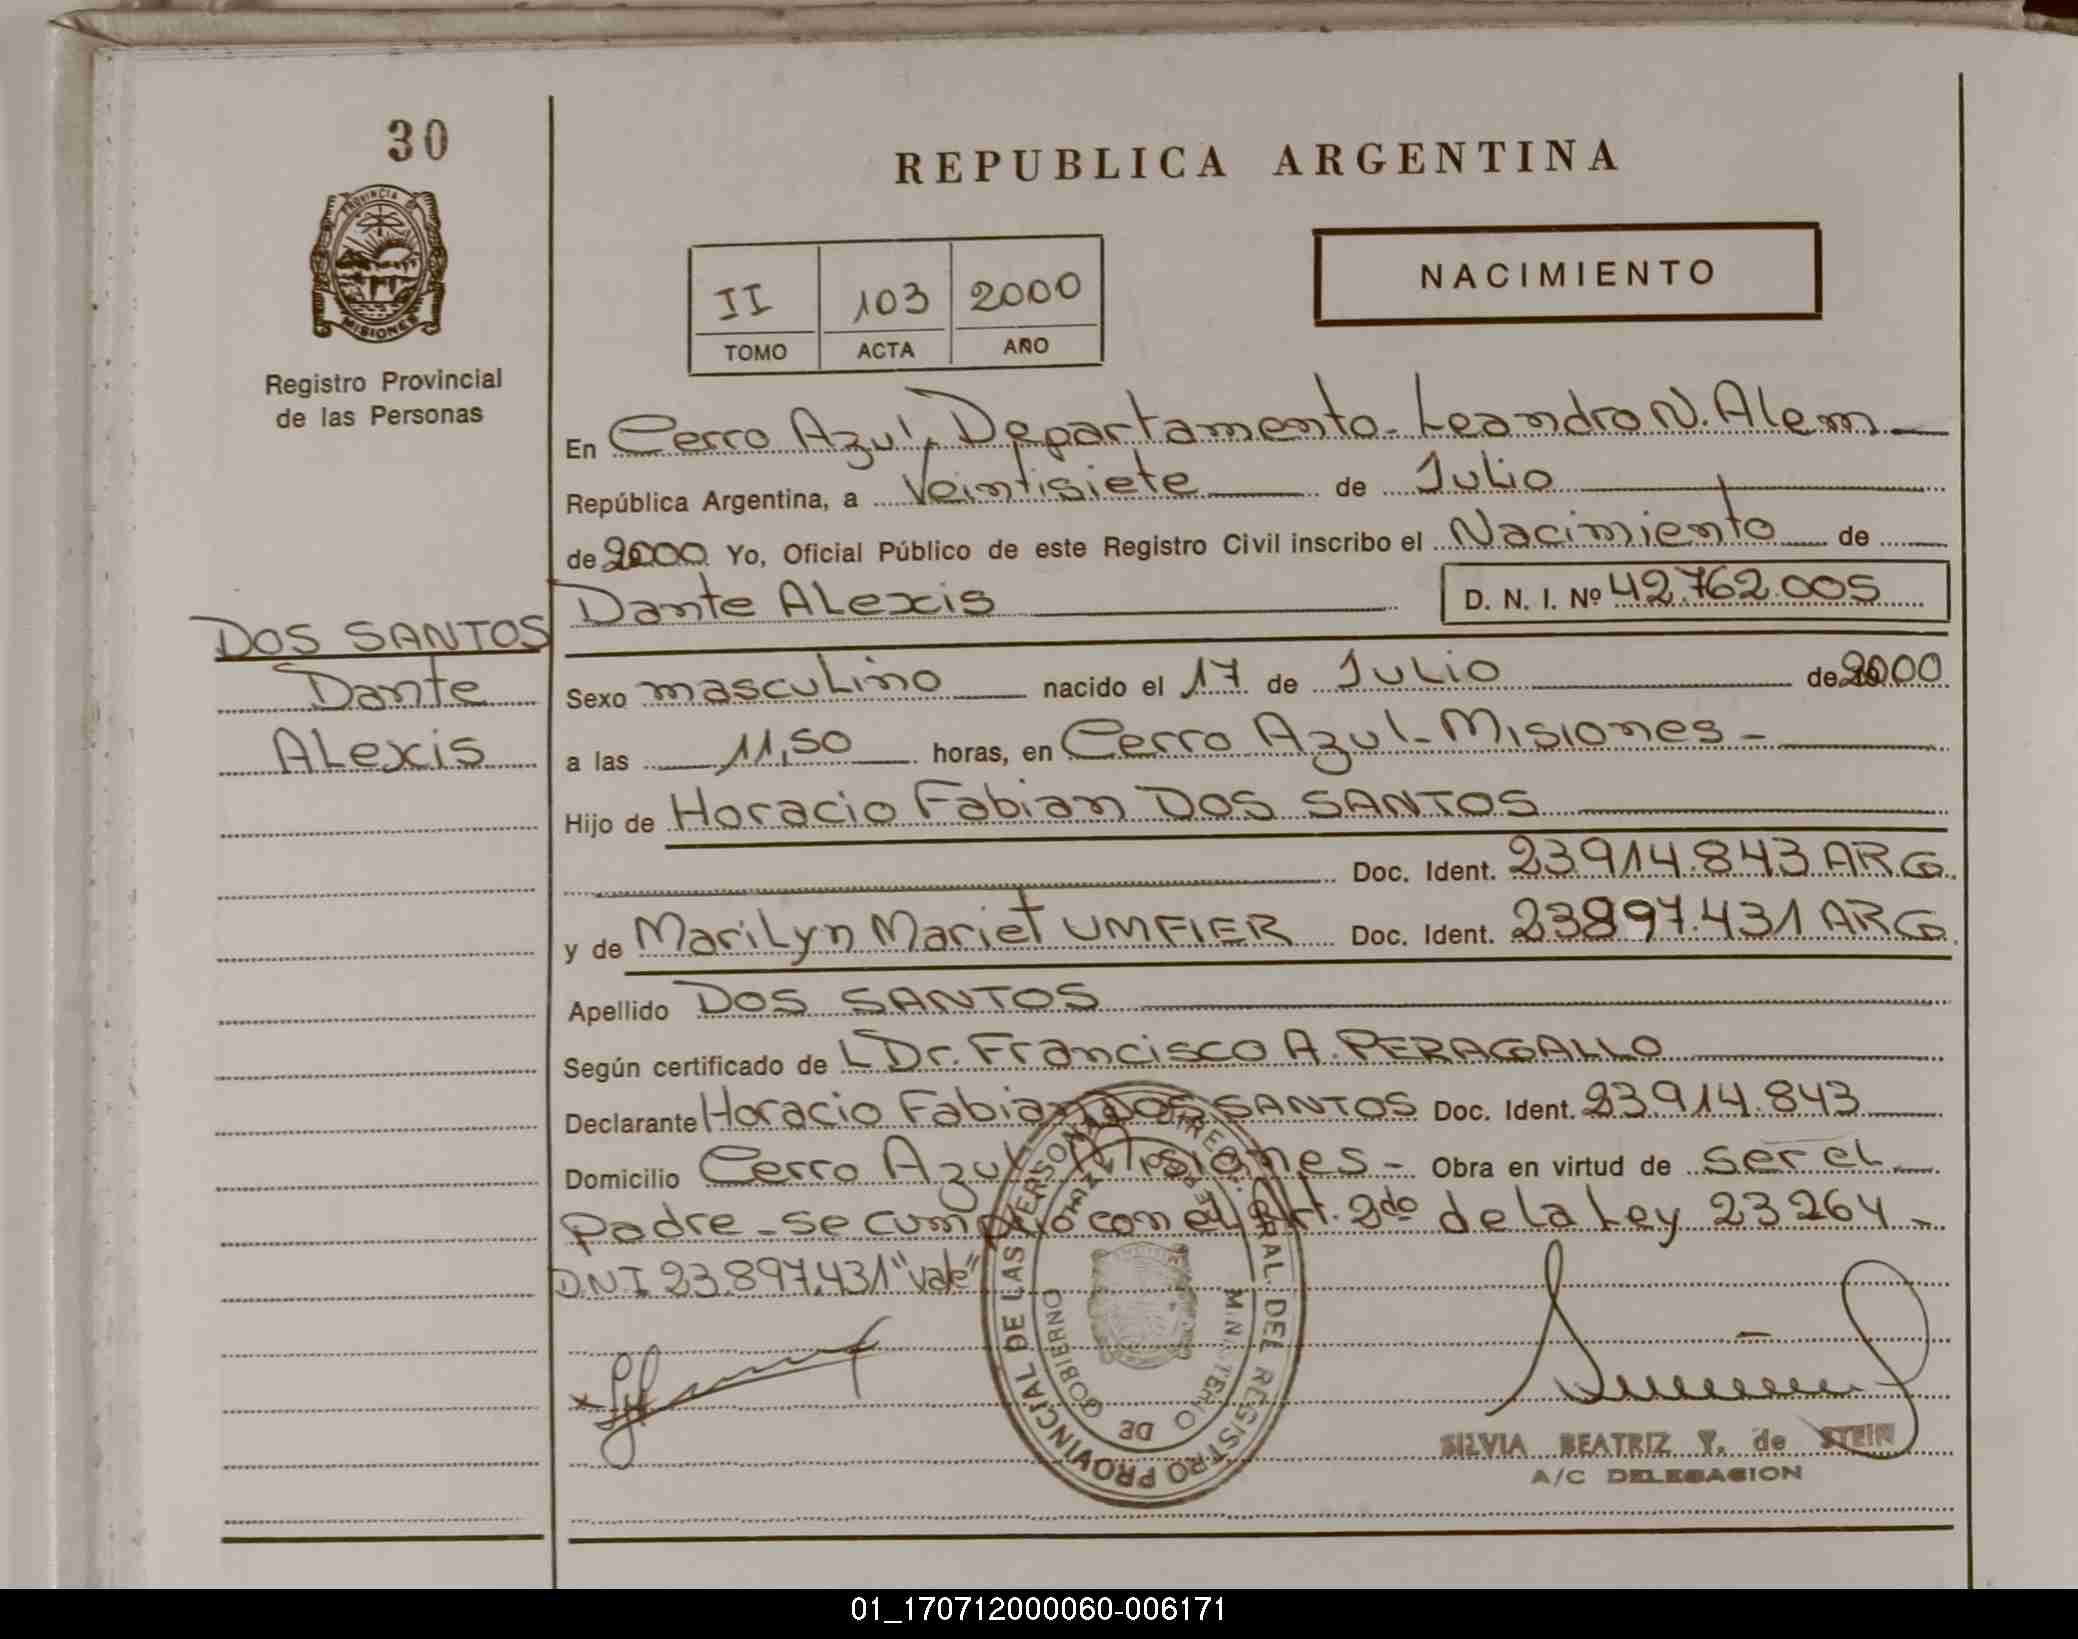 30
REPUBLICA ARGENTINA
PROVINCIA DE
MISIONES
Registro Provincial
de las Personas
NACIMIENTO
II 103 2000
TOMO ACTA AÑO
En Cerro Azul, Departamento - Leandro N. Alem
República Argentina, a Veintisiete de Julio
de 2000 Yo, Oficial Público de este Registro Civil inscribo el Nacimiento de
Dante Alexis D. N. I. Nº 42.762.005
DOS SANTOS
Dante
Alexis
Sexo masculino nacido el 17 de Julio de 2000
a las 11,50 horas, en Cerro Azul - Misiones -
Hijo de Horacio Fabian DOS SANTOS
Doc. Ident. 23914.843 ARG.
y de Marilyn Mariet UMFIER Doc. Ident. 23897.431 ARG.
Apellido DOS SANTOS
Según certificado de L Dr. Francisco A. PERAGALLO
Declarante Horacio Fabian DOS SANTOS Doc. Ident. 23.914.843
Domicilio Cerro Azul Misiones - Obra en virtud de ser el
padre - se cumplio con el Art. 2do de la Ley 23264 -
D.N.I 23.897.431 "vale"
REGISTRO PROVINCIAL DE LAS PERSONAS
MINISTERIO DE GOBIERNO
SILVIA BEATRIZ Y. de STEIN
A/C DELEGACION
01_170712000060-006171